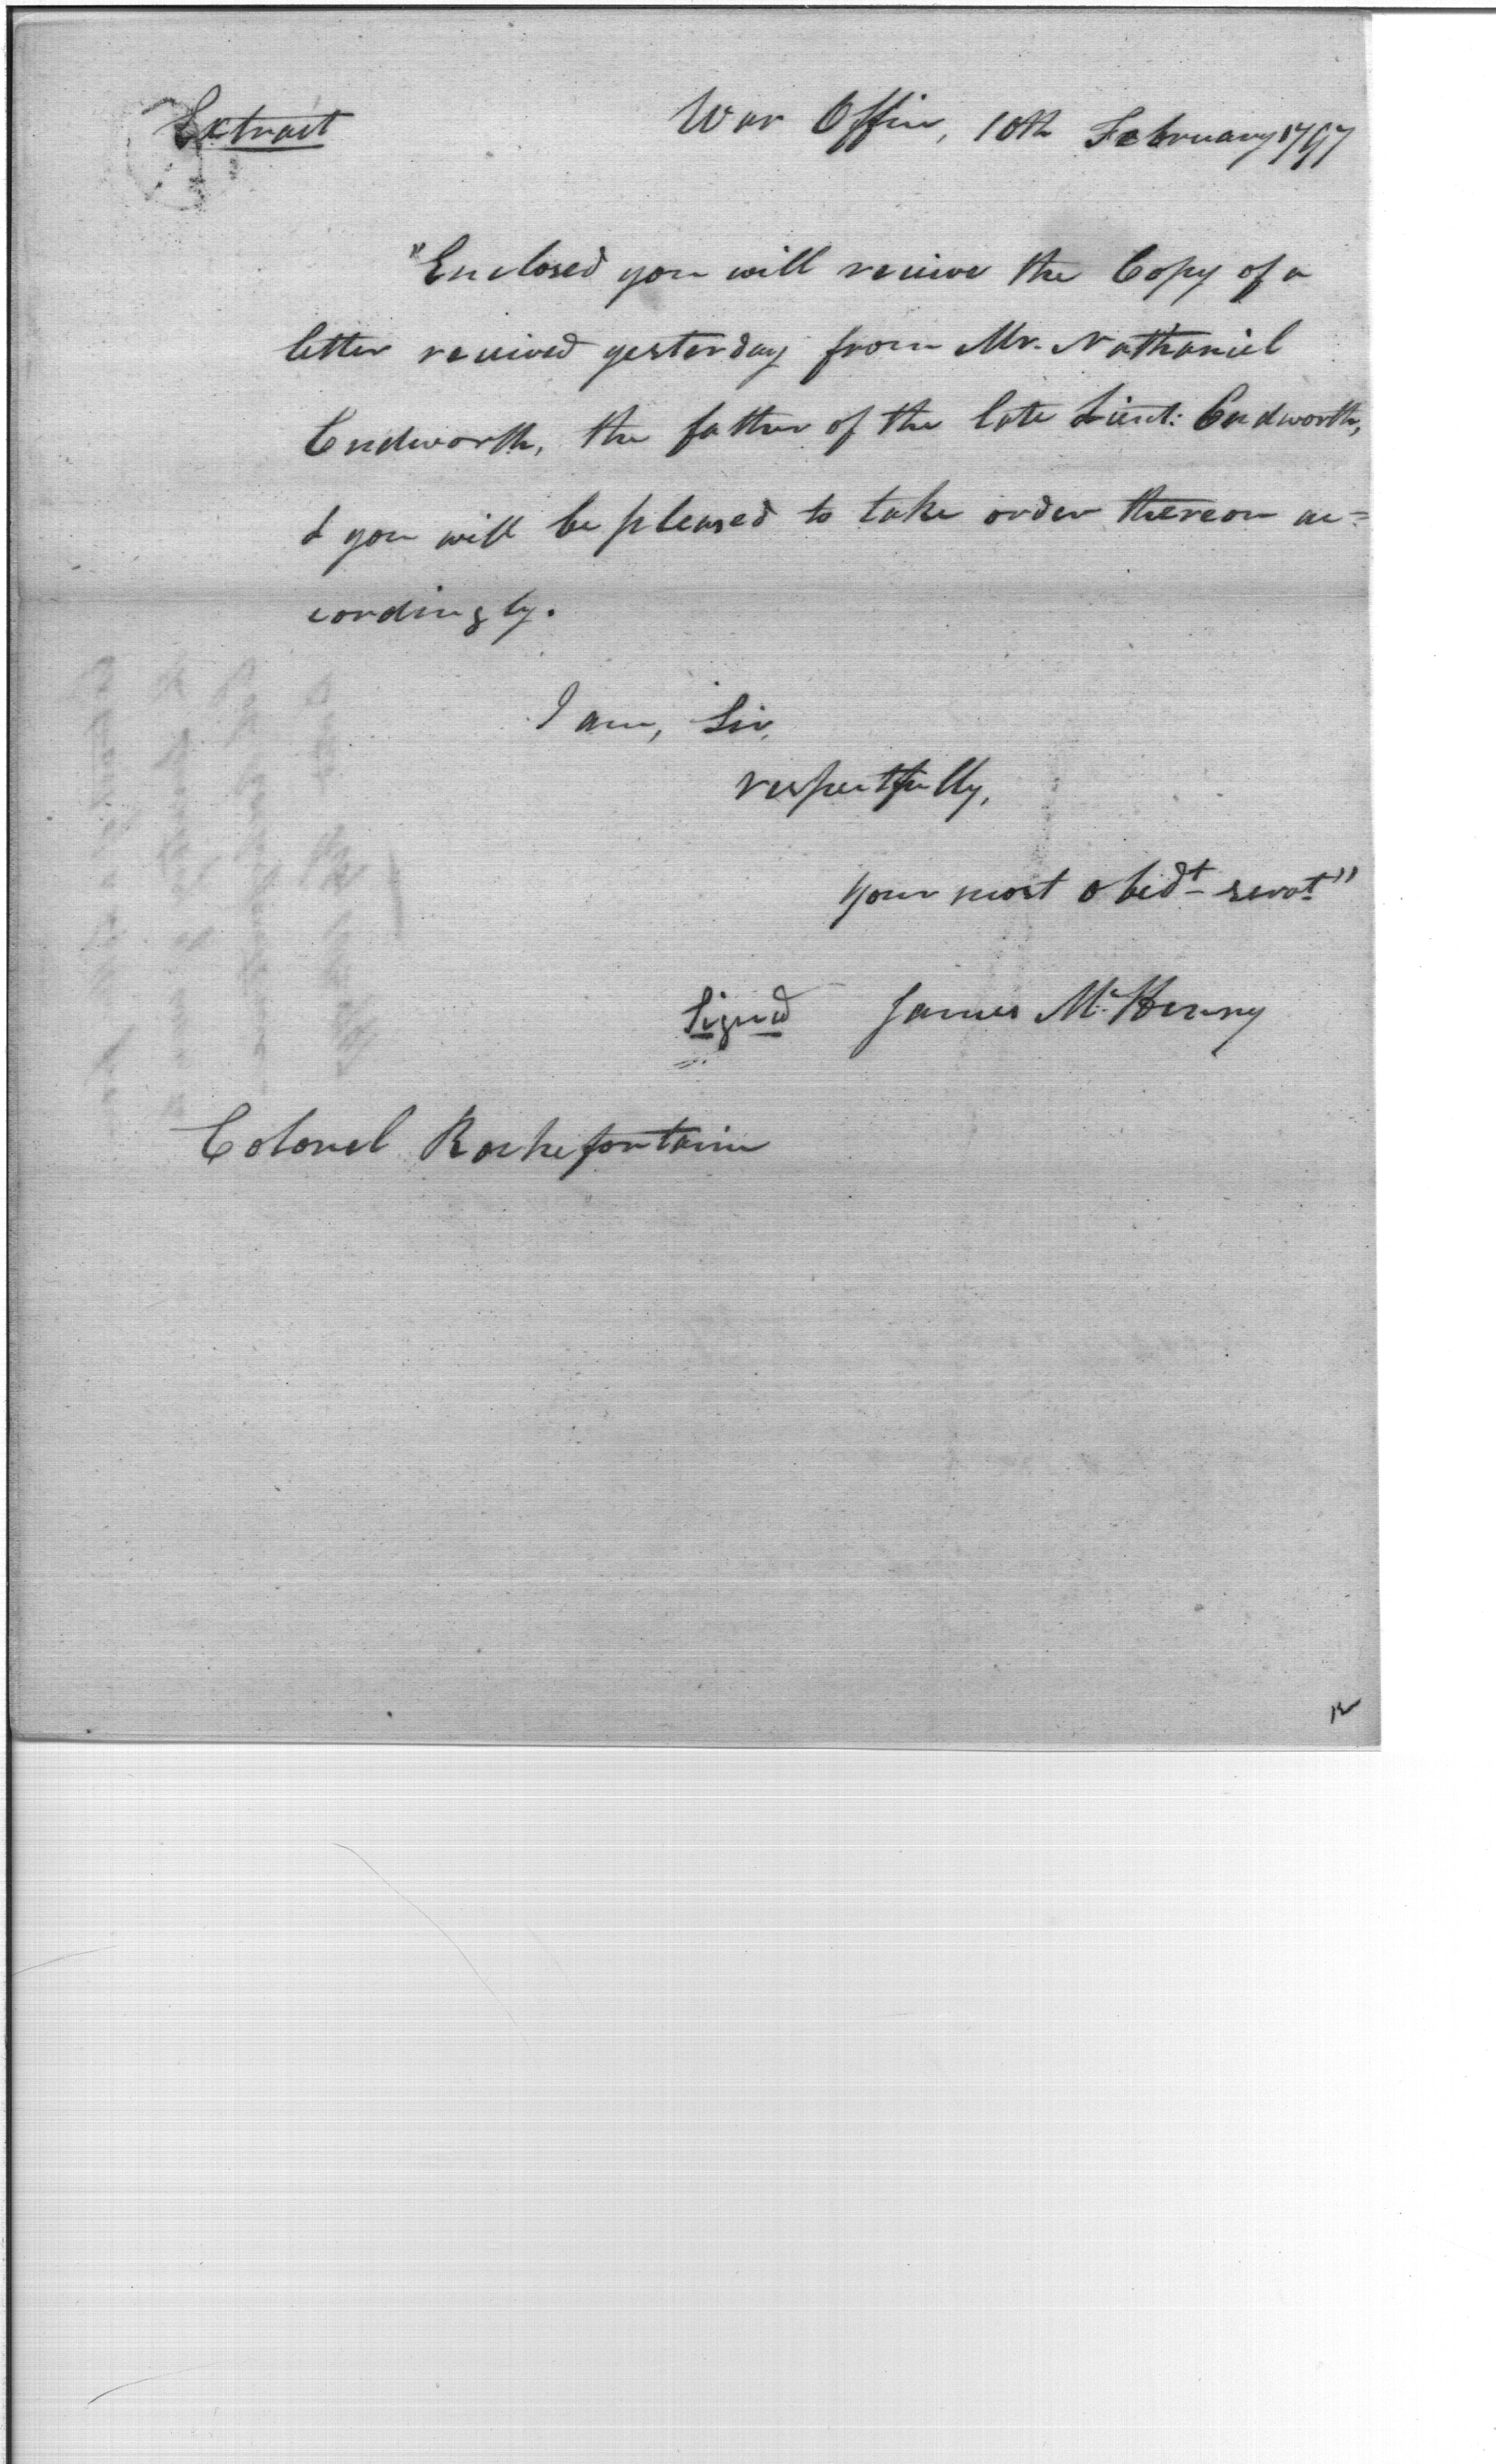 Extract
War Office, 10th February 1797
"Enclosed you will receive the Copy of a
letter received yesterday from Mr. Nathaniel
Cudworth, the father of the late Lieut: Cudworth,
& you will be pleased to take order thereon ac=
cordingly.
I am, Sir,
respectfully,
your most obedt servt"
Signed James McHenry
Colonel Rochefontaine